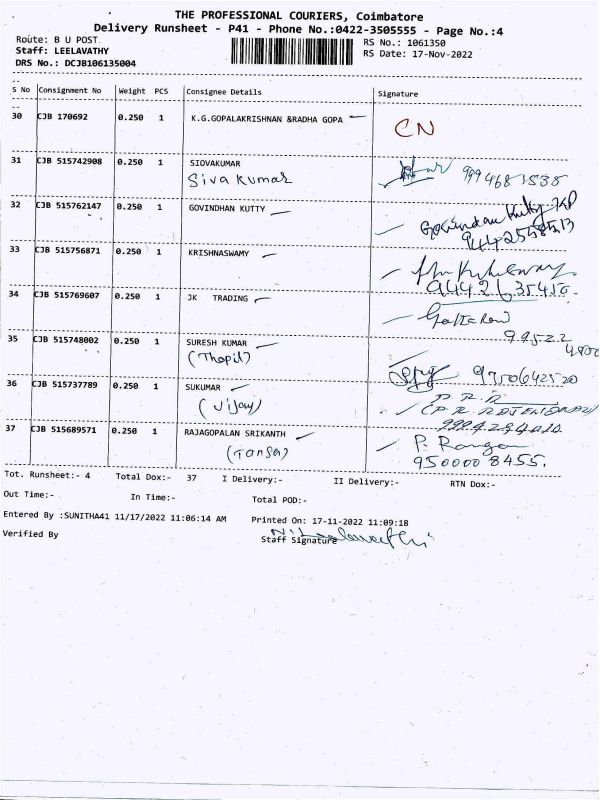 THE PROFESSIONAL COURIERS, Coimbatore
Delivery Runsheet - P41 - Phone No.:0422-3505555 - Page No.:4
Route: B U POST.
RS No.: 1061350
Staff: LEELAVATHY
RS Date: 17-Nov-2022
DRS No.: DCJB106135004
S No Consignment No Weight PCS Consignee Details Signature
30 CJB 170692 0.250 1 K.G.GOPALAKRISHNAN &RADHA GOPA CN
31 CJB 515742908 0.250 1 SIOVAKUMAR
Siva Kumar
32 CJB 515762147 0.250 1 GOVINDHAN KUTTY Govindan Kutty
33 CJB 515756871 0.250 1 KRISHNASWAMY
9442635450
34 CJB 515769607 0.250 1 JK TRADING
35 CJB 515748002 0.250 1 SURESH KUMAR 99522
(Thopil)
36 CJB 515737789 0.250 1 SUKUMAR P.R.R
(Vijay)
37 CJB 515689571 0.250 1 RAJAGOPALAN SRIKANTH P. Rangan
(Tansa) 950000 8455.
Tot. Runsheet:- 4 Total Dox:- 37 I Delivery:- II Delivery:- RTN Dox:-
Out Time:- In Time:- Total POD:-
Entered By :SUNITHA41 11/17/2022 11:06:14 AM Printed On: 17-11-2022 11:09:18
Verified By Staff Signature